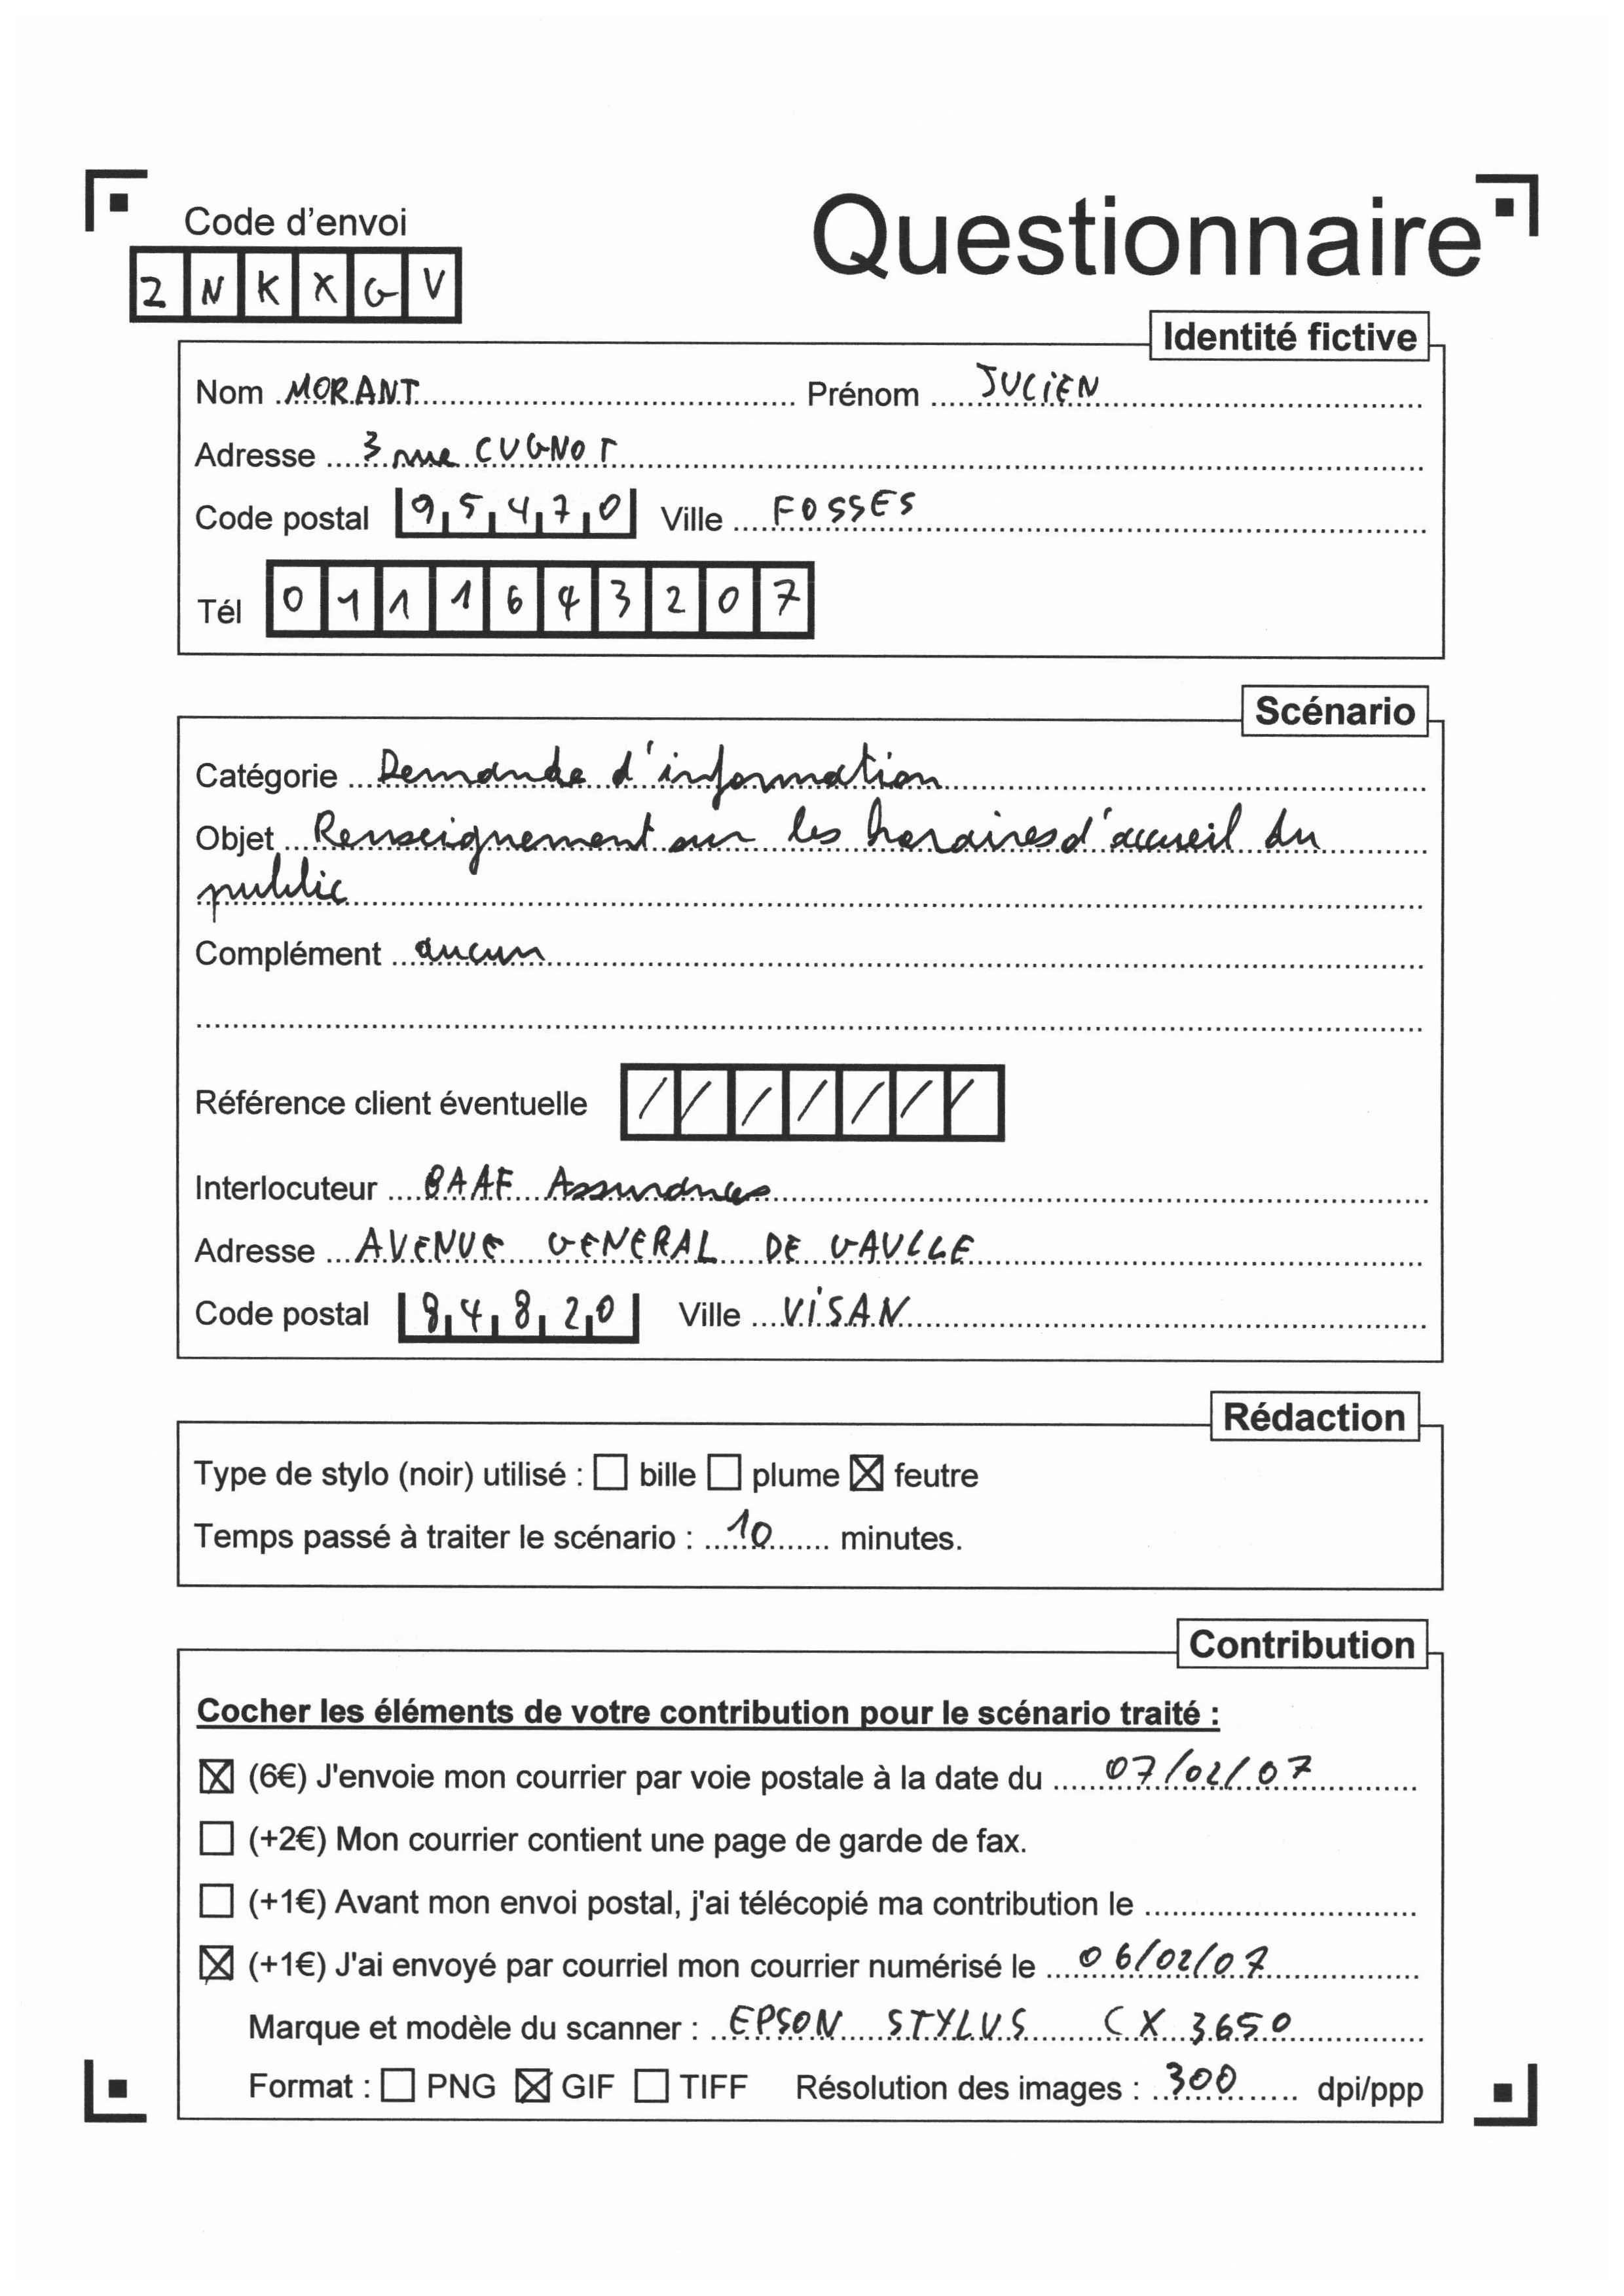 Code d'envoi
Questionnaire
2 N K X G V
Identité fictive
Nom MORANT Prénom JULIEN
Adresse 3 rue CUGNOT
Code postal 95470 Ville FOSSES
Tél 0111643207
Scénario
Catégorie Demande d'information
Objet Renseignement sur les horaires d'accueil du
public
Complément aucun
Référence client éventuelle / / / / / / /
Interlocuteur BAAF Assurances
Adresse AVENUE GENERAL DE GAULLE
Code postal 84820 Ville VISAN
Rédaction
Type de stylo (noir) utilisé : ☐ bille ☐ plume ☒ feutre
Temps passé à traiter le scénario : 10 minutes.
Contribution
Cocher les éléments de votre contribution pour le scénario traité :
☒ (6€) J'envoie mon courrier par voie postale à la date du 07/02/07
☐ (+2€) Mon courrier contient une page de garde de fax.
☐ (+1€) Avant mon envoi postal, j'ai télécopié ma contribution le
☒ (+1€) J'ai envoyé par courriel mon courrier numérisé le 06/02/07
Marque et modèle du scanner : EPSON STYLUS CX 3650
Format : ☐ PNG ☒ GIF ☐ TIFF Résolution des images : 300 dpi/ppp